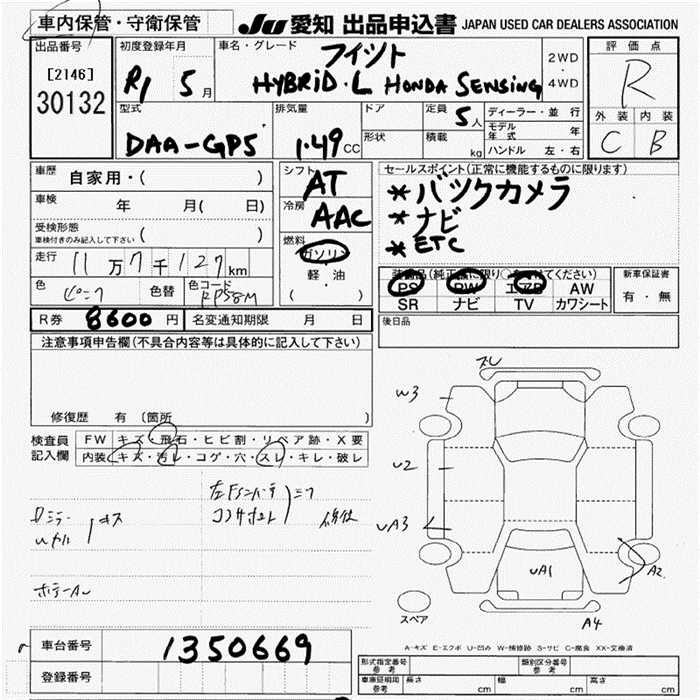 車内保管・守衛保管
JU 愛知 出品申込書 JAPAN USED CAR DEALERS ASSOCIATION
出品番号
[2146]
30132
初度登録年月
R1 5月
車名・グレード
フィット
HYBRID・L HONDA SENSING
2WD
・
4WD
評価点
R
外装 内装
C B
型式
DAA-GP5
排気量
1.49 CC
ドア
形状
定員 5人
積載 kg
ディーラー・並行
モデル年式 年
ハンドル 左・右
車歴 自家用・( )
車検 年 月( 日)
受検形態
車検付きのみ記入して下さい ( )
走行 11万7千127km
色 ピンク 色替 色コード RP58M
R券 8600円 名変通知期限 月 日
シフト
AT
冷房
AAC
燃料
ガソリン
軽・油
( )
セールスポイント(正常に機能するものに限ります)
*バックカメラ
*ナビ
*ETC
装備品(純正品に限り○を付けてください)
PS PW エアB AW
SR ナビ TV カワシート
新車保証書
有・無
後日品
注意事項申告欄(不具合内容等は具体的に記入して下さい)
修復歴 有 (箇所 )
検査員
記入欄
FW キズ・飛石・ヒビ割・リペア跡・X要
内装 キズ・汚レ・コゲ・穴・スレ・キレ・破レ
キズ
コアサポート
修復
ズレ
W3
U2
UA3
UA1
A2
A4
スペア
A-キズ E-エクボ U-凹み W-補修跡 S-サビ C-腐食 XX-交換済
車台番号 1350669
登録番号
型式指定番号
参考
類別区分番号
参考
車庫証明用
参考
長さ cm 幅 cm 高さ cm